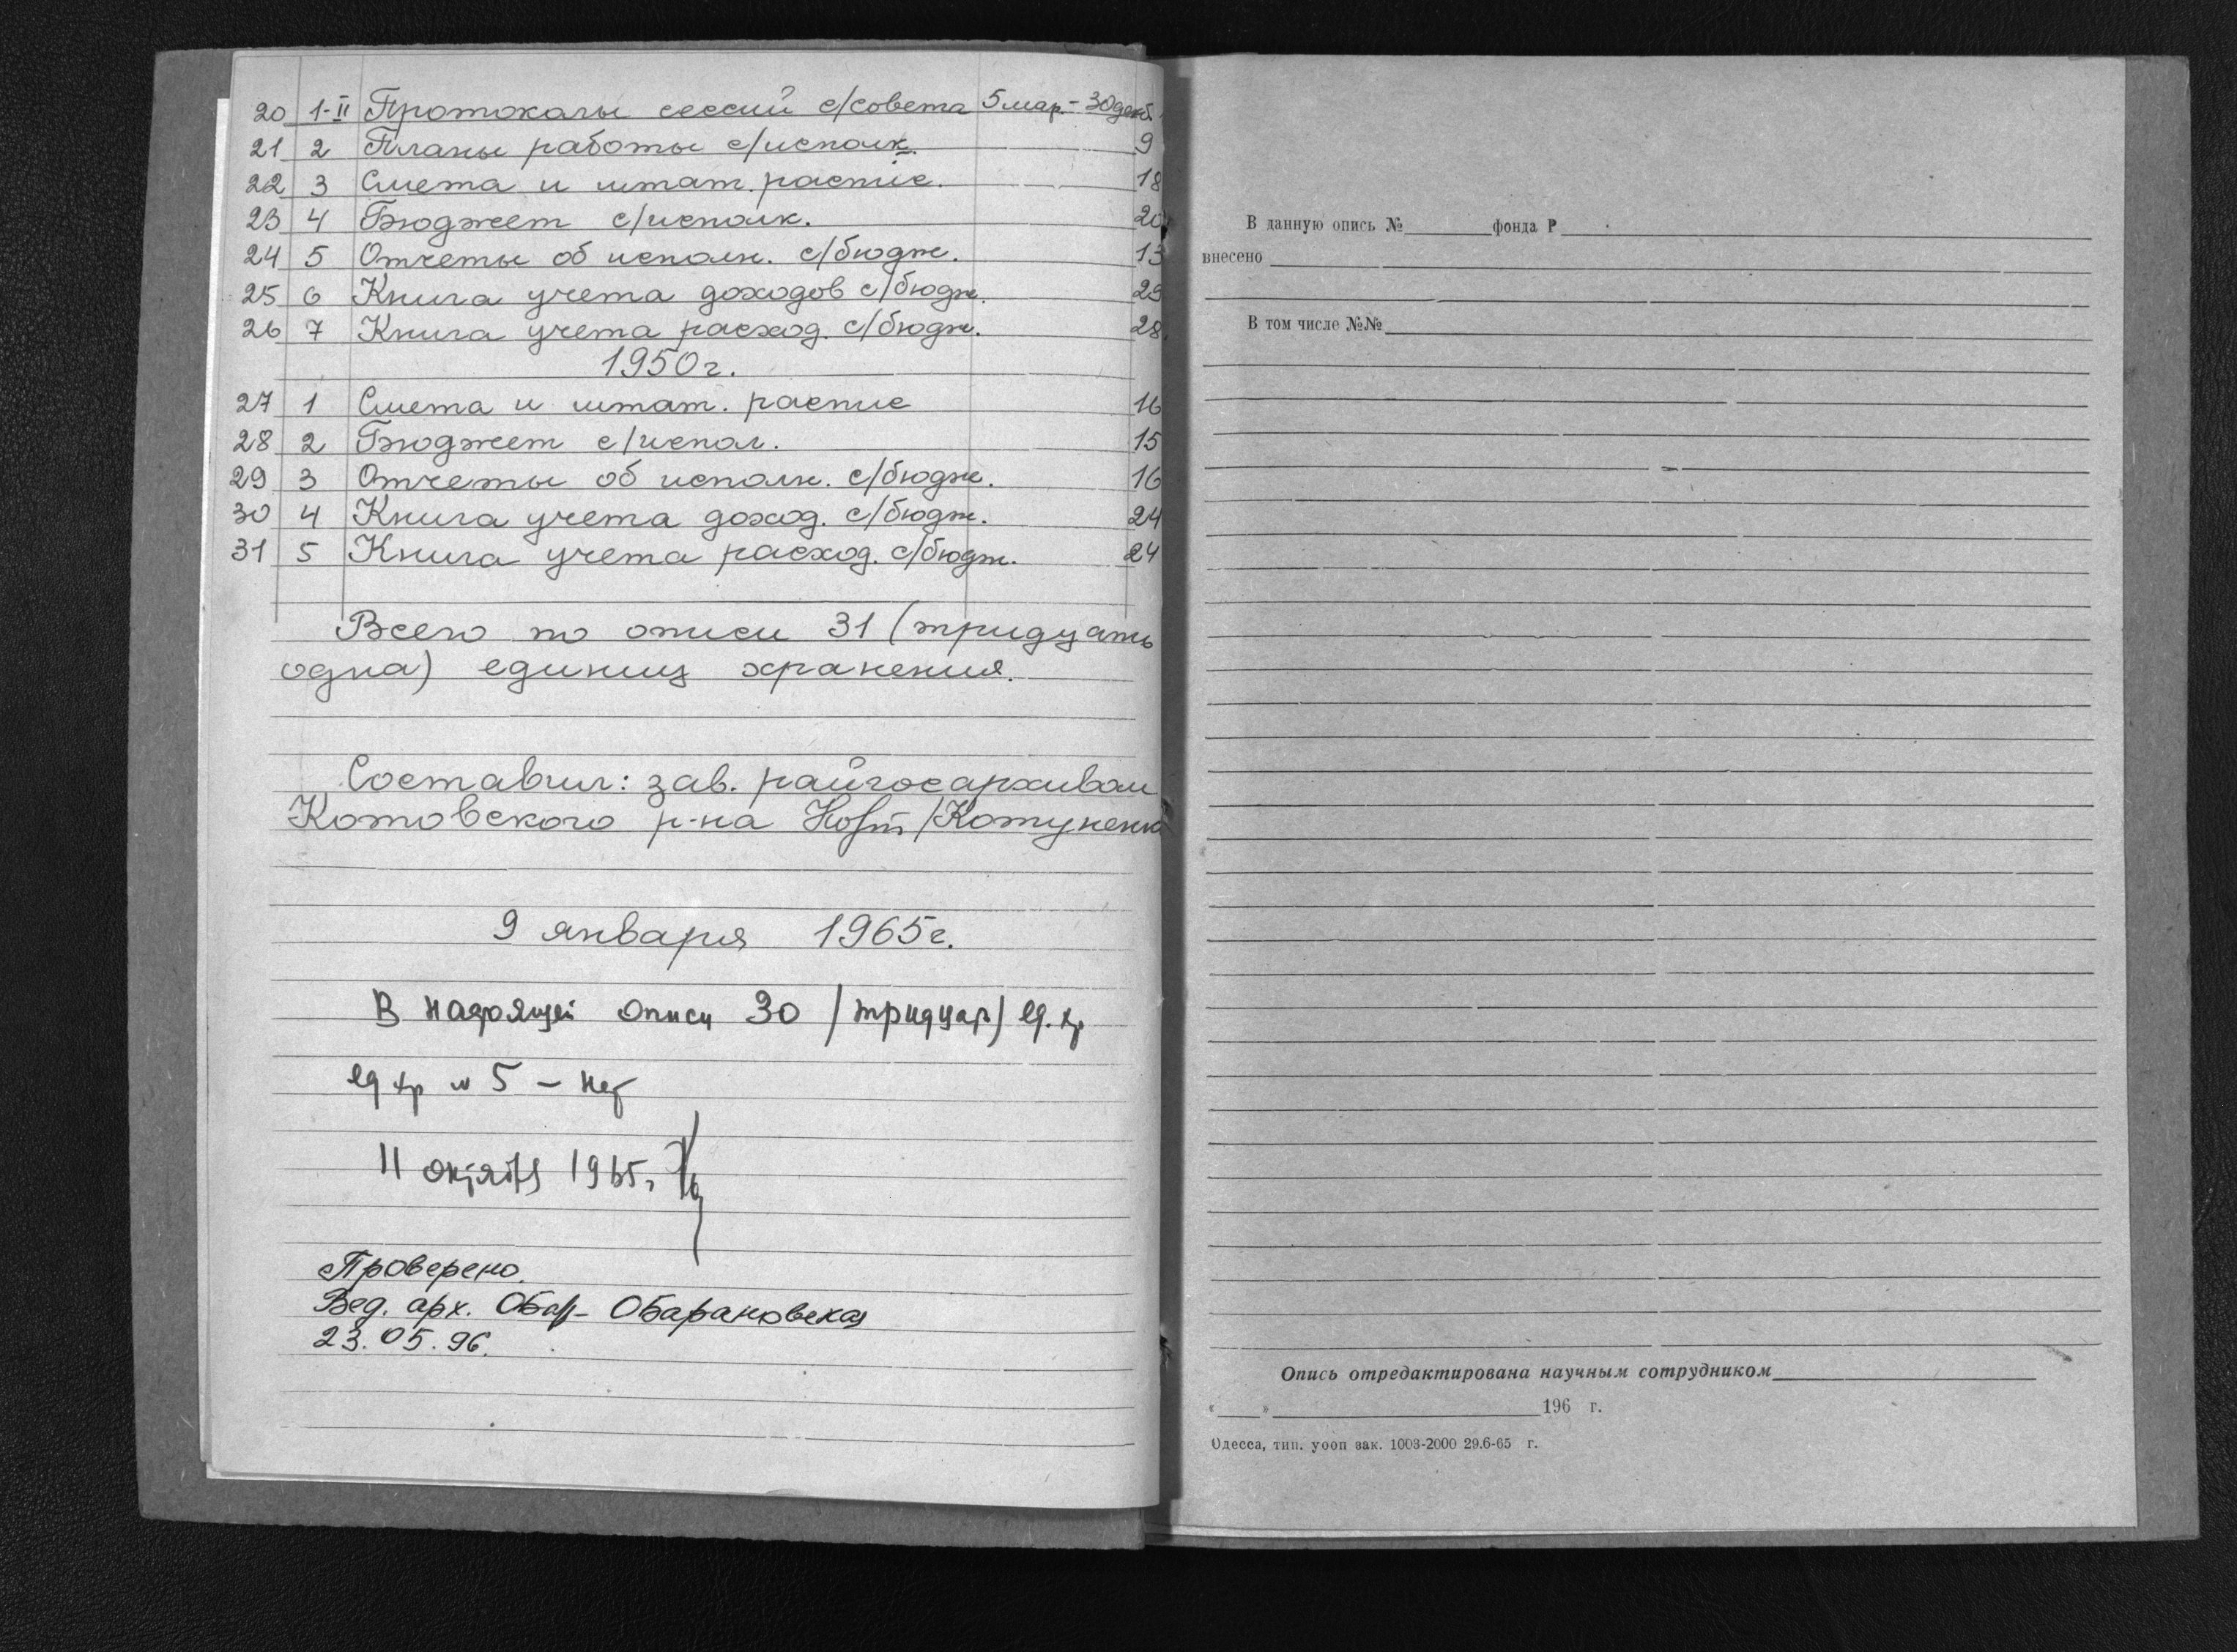 20 1-II Протоколы сессий с/совета 5 мар. - 30 декб.
21 2 Планы работы с/исполк. 9
22 3 Смета и штат. распис. 18
23 4 Бюджет с/исполк. 20
24 5 Отчеты об исполн. с/бюдж. 13
25 6 Книга учета доходов с/бюдж. 29
26 7 Книга учета расход. с/бюдж. 28
1950г.
27 1 Смета и штат. распис 16
28 2 Бюджет с/испол. 15
29 3 Отчеты об исполн. с/бюдж. 16
30 4 Книга учета доход. с/бюдж. 24
31 5 Книга учета расход. с/бюдж. 24
Всего по описи 31 (тридцать
одна) единиц хранения.
Составил: зав. райгосархивом
Котовского р-на /Котуненко
9 января 1965г.
В настоящей описи 30 /тридцать/ ед. хр
ед хр № 5 - нет
11 октября 1965г.
Проверено.
Вед. арх. ОБарановская
23.05.96.
В данную опись № фонда Р
внесено
В том числе №№
Опись отредактирована научным сотрудником
« » 196 г.
Одесса, тип. уооп зак. 1003-2000 29.6-65 г.